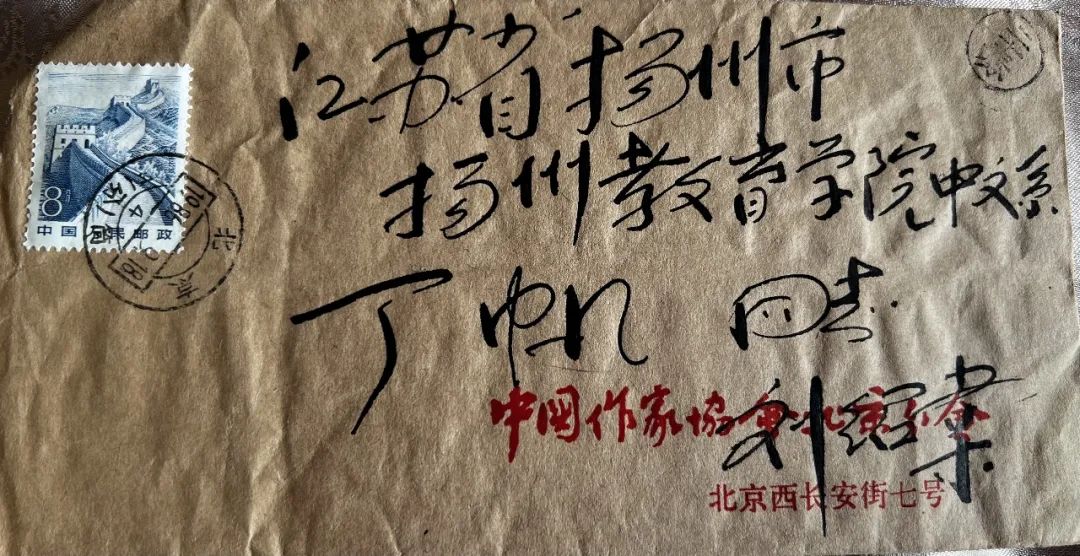 江苏省扬州市
扬州教育学院中文系
丁帆 同志
中国作家协会北京分会
刘绍棠
北京西长安街七号
8
中国人民邮政
北京